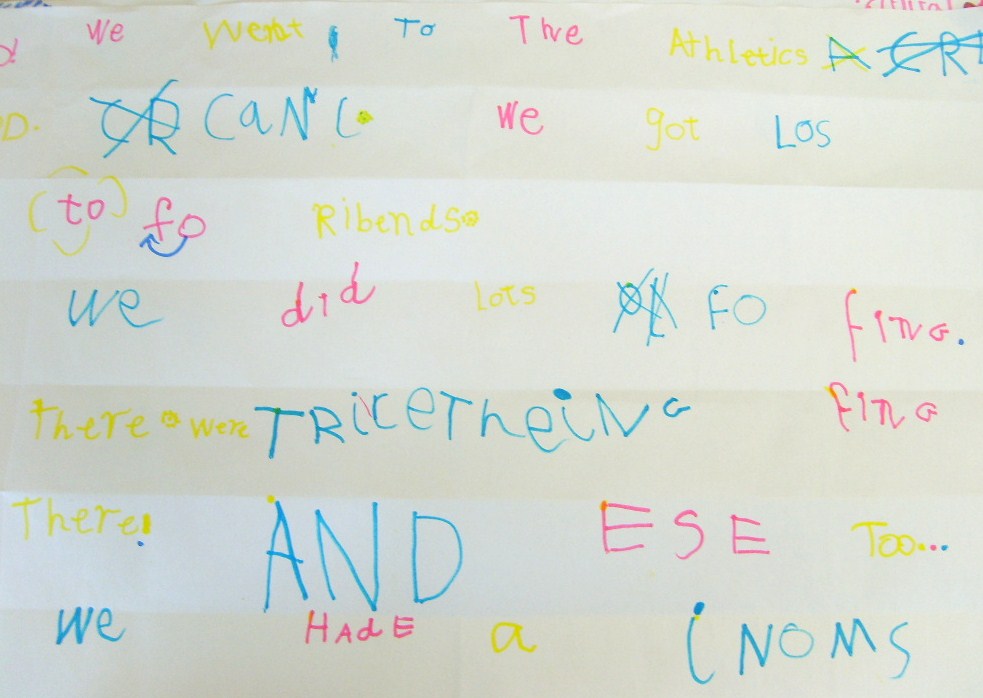 We Went To The Athletics
CaN'C. We got Los
(to) fo Ribends.
We did Lots FO fing.
There were TRiceTheiNG fing
There! AND ESE Too...
We HAdE a iNOMS